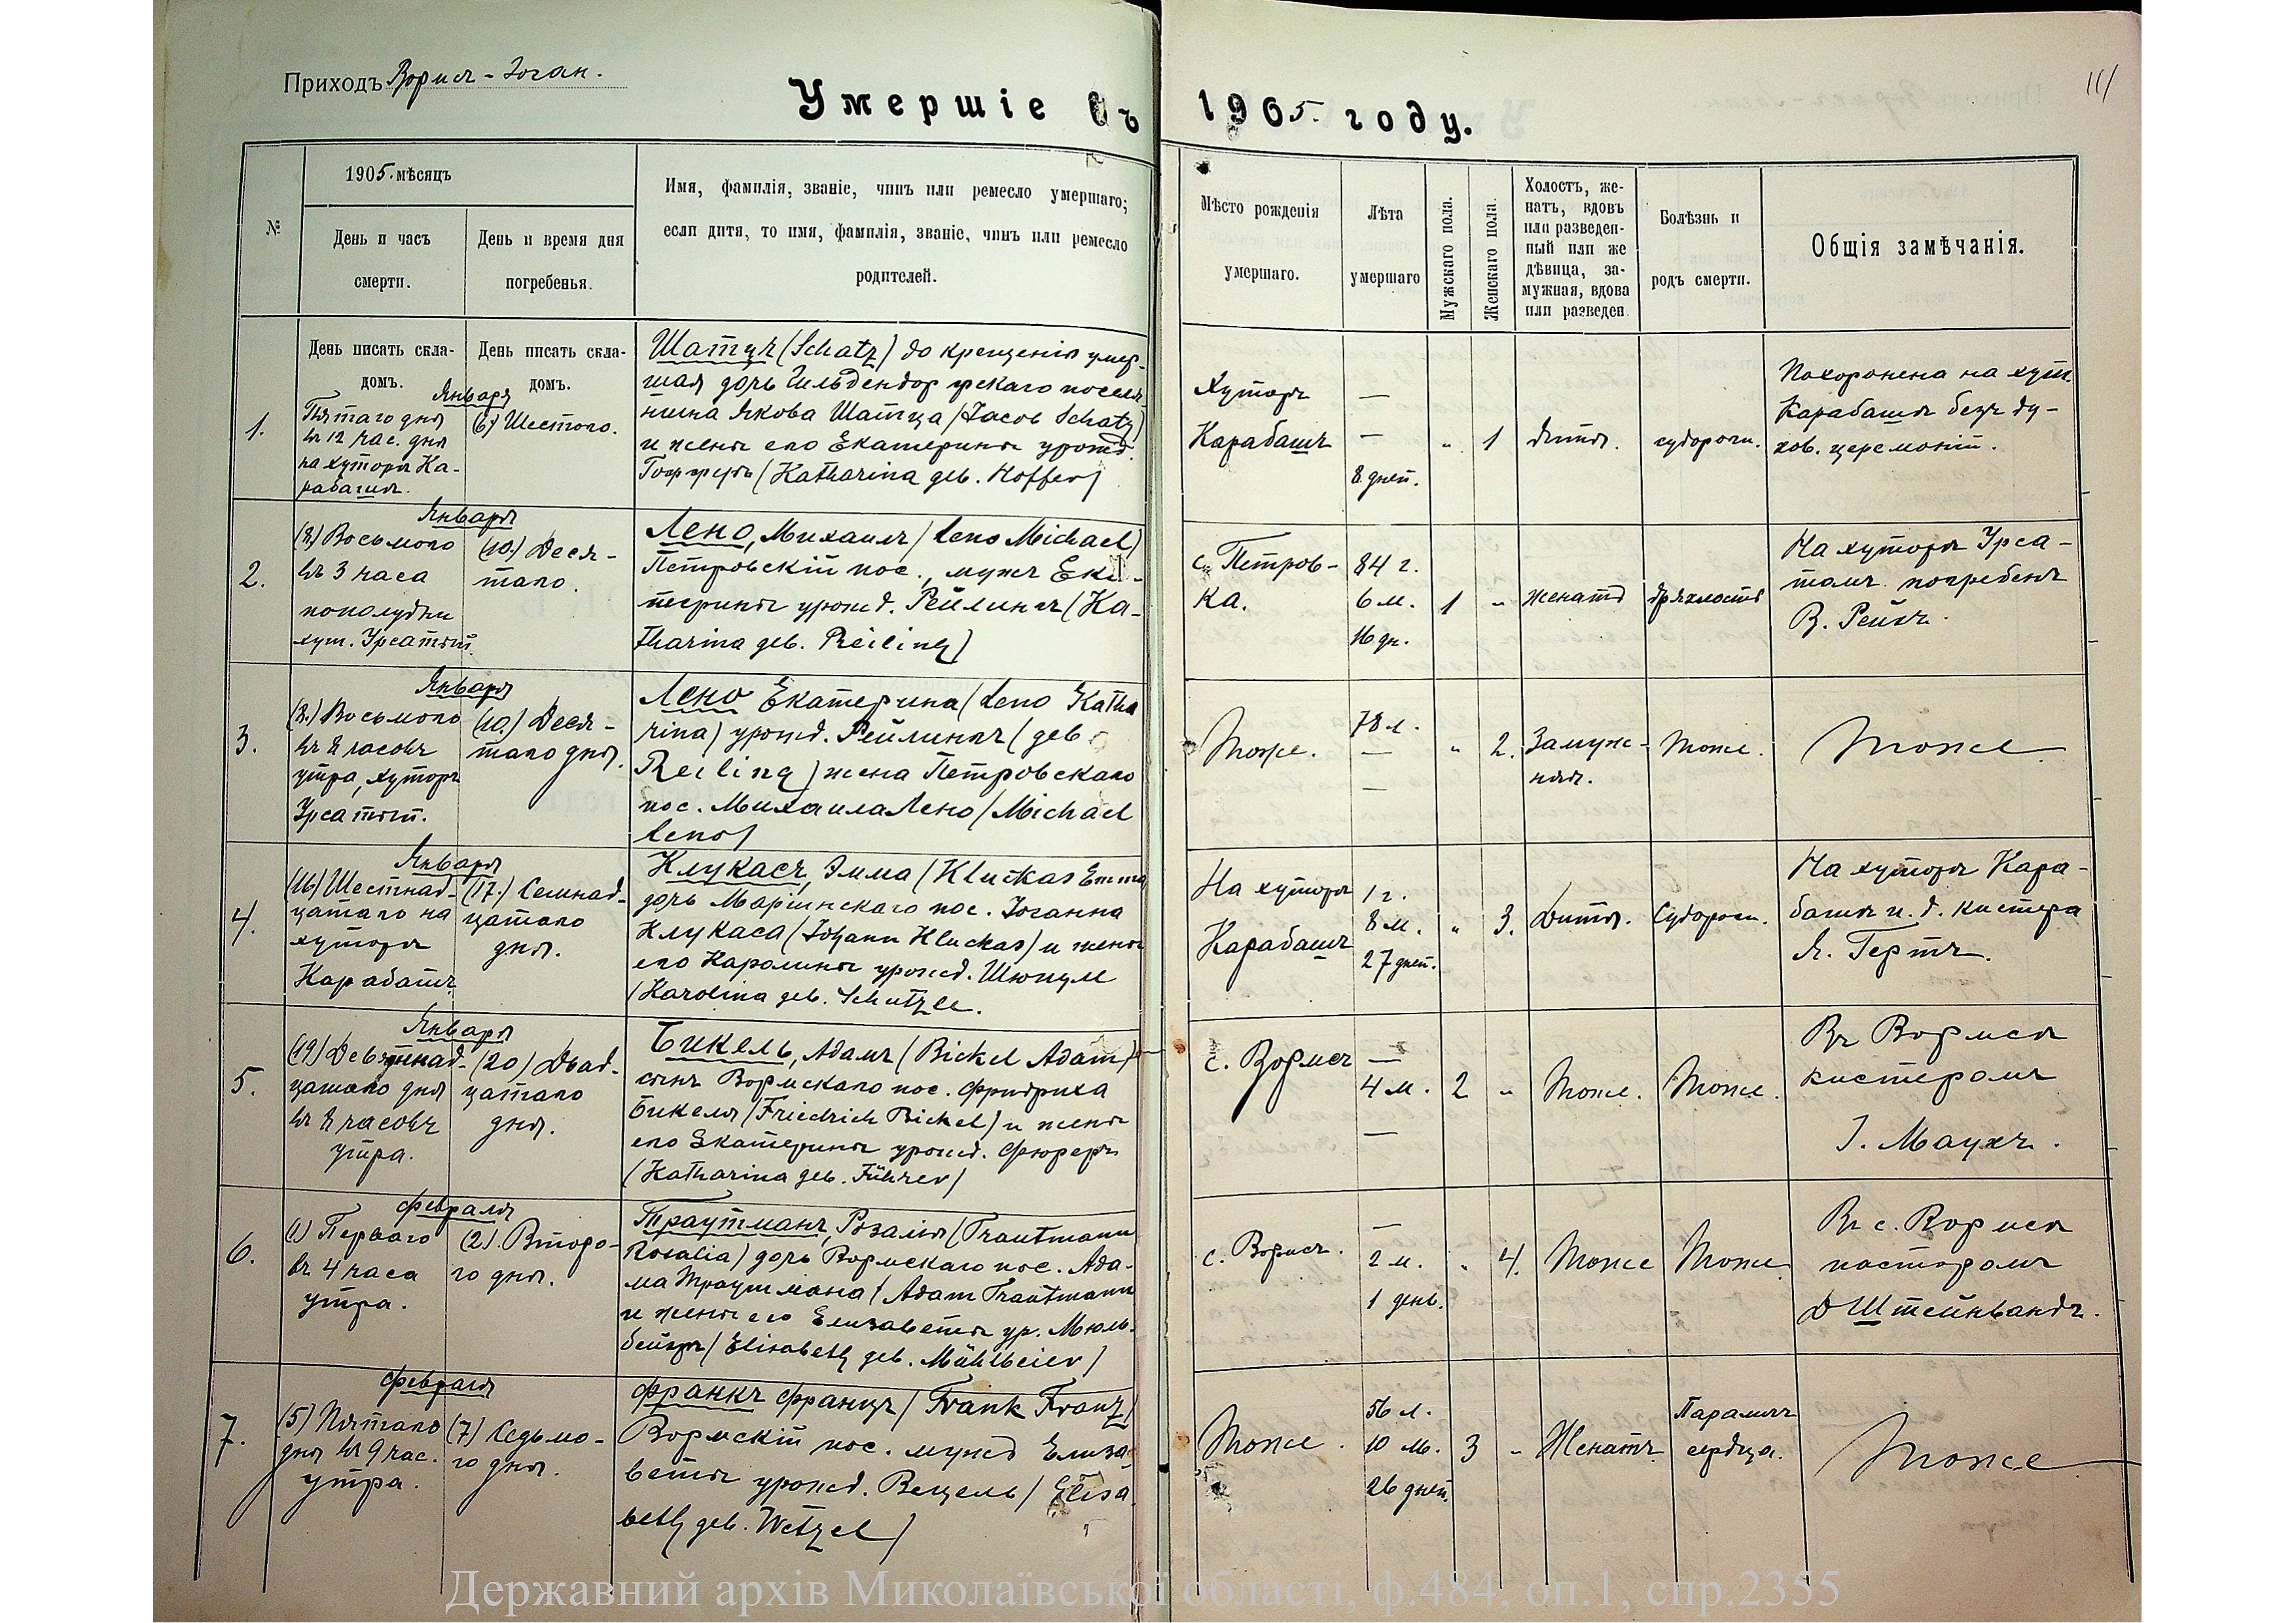 Приходъ Вормсъ-Іоган.
111
Умершіе въ 1905 году.
№
1905 мѣсяцъ
День и часъ
смерти.
День и время дня
погребенья.
Имя, фамилія, званіе, чинъ или ремесло умершаго;
если дитя, то имя, фамилія, званіе, чинъ или ремесло
родителей.
Мѣсто рожденія
умершаго.
Лѣта
умершаго
Мужскаго пола.
Женскаго пола.
Холостъ, же-
натъ, вдовъ
или разведен-
ный или же
дѣвица, за-
мужная, вдова
или разведен.
Болѣзнь и
родъ смерти.
Общія замѣчанія.
День писать скла-
домъ.
День писать скла-
домъ.
1.
Января
Пятаго дня
въ 12 час. дня
на хуторѣ Ка-
рабашѣ.
(6) Шестого.
Шатцъ (Schatz) до крещенія умер-
шая дочь Гильдендорфскаго поселя
нина Якова Шатца (Jacob Schatz)
и жены его Екатерины урожд.
Гофферъ (Katharina geb. Hoffer)
Хуторъ
Карабашъ
—
—
8 дней.
"
1
Дитя.
судороги.
Похоронена на хут.
Карабашѣ безъ ду-
хов. церемоній.
2.
Января
(8) Восьмого
въ 3 часа
пополудни
хут. Урсатый.
(10.) Деся-
таго.
Лено, Михаилъ (Leno Michael)
Петровскій пос., мужъ Ека-
терины урожд. Рейлингъ (Ka-
tharina geb. Reiling)
с. Петров-
ка.
84 г.
6 м.
16 дн.
1
"
женатъ
дряхлость
На хуторѣ Урса-
томъ погребенъ
В. Рейхъ.
3.
Января
(8.) Восьмого
въ 8 часовъ
утра, хуторъ
Урсатый.
(10.) Деся-
таго дня.
Лено Екатерина (Leno Katha
rina) урожд. Рейлингъ (geb.
Reiling) жена Петровскаго
пос. Михаила Лено (Michael
Leno)
Тоже.
78 л.
—
—
"
2.
Замуж-
няя.
Тоже.
Тоже
4.
Января
(16) Шестнад-
цатаго на
хуторѣ
Карабашъ
(17.) Семнад-
цатаго
дня.
Клукасъ, Эмма (Kluckas Emma
дочь Маріинскаго пос. Іоганна
Клукаса (Johann Kluckas) и жены
его Каролины урожд. Шюцле
(Karolina geb. Schutzle.
На хуторѣ
Карабашъ
1 г.
8 м.
27 дней.
"
3.
Дитя.
Судороги.
На хуторѣ Кара-
башѣ и. д. кистера
Я. Гертъ.
5.
Января
(19) Девятнад-
цатаго дня
въ 8 часовъ
утра.
(20) Двад-
цатаго
дня.
Бикель, Адамъ (Bickel Adam)
сынъ Вормскаго пос. Фридриха
Бикеля (Friedrich Bickel) и жены
его Екатерины урожд. Фюреръ
(Katharina geb. Führer)
с. Вормсъ
—
4 м.
—
2
"
Тоже.
Тоже.
Въ Вормсѣ
кистеромъ
І. Маухъ.
6.
Февраля
(1) Перваго
въ 4 часа
утра.
(2). Второ-
го дня.
Траутманъ, Розалія (Trautmann
Rosalia) дочь Вормскаго пос. Ада-
ма Траутмана (Adam Trautmann
и жены его Елизаветы ур. Мюль-
бейеръ (Elisabeth geb. Mühlbeier)
с. Вормсъ.
—
2 м.
1 день.
"
4.
Тоже
Тоже
Въ с. Вормсѣ
пасторомъ
Д Штейнвандъ.
7.
Февраля
(5) Пятаго
дня въ 9 час.
утра.
(7) Седьмо-
го дня.
Франкъ Францъ (Frank Franz)
Вормскій пос. мужъ Елиза
веты урожд. Вецель (Elisa
beth geb. Wetzel)
Тоже.
56 л.
10 м.
26 дней.
3
"
Женатъ.
Параличъ
сердца.
Тоже
Державний архів Миколаївської області, ф.484, оп.1, спр.2355